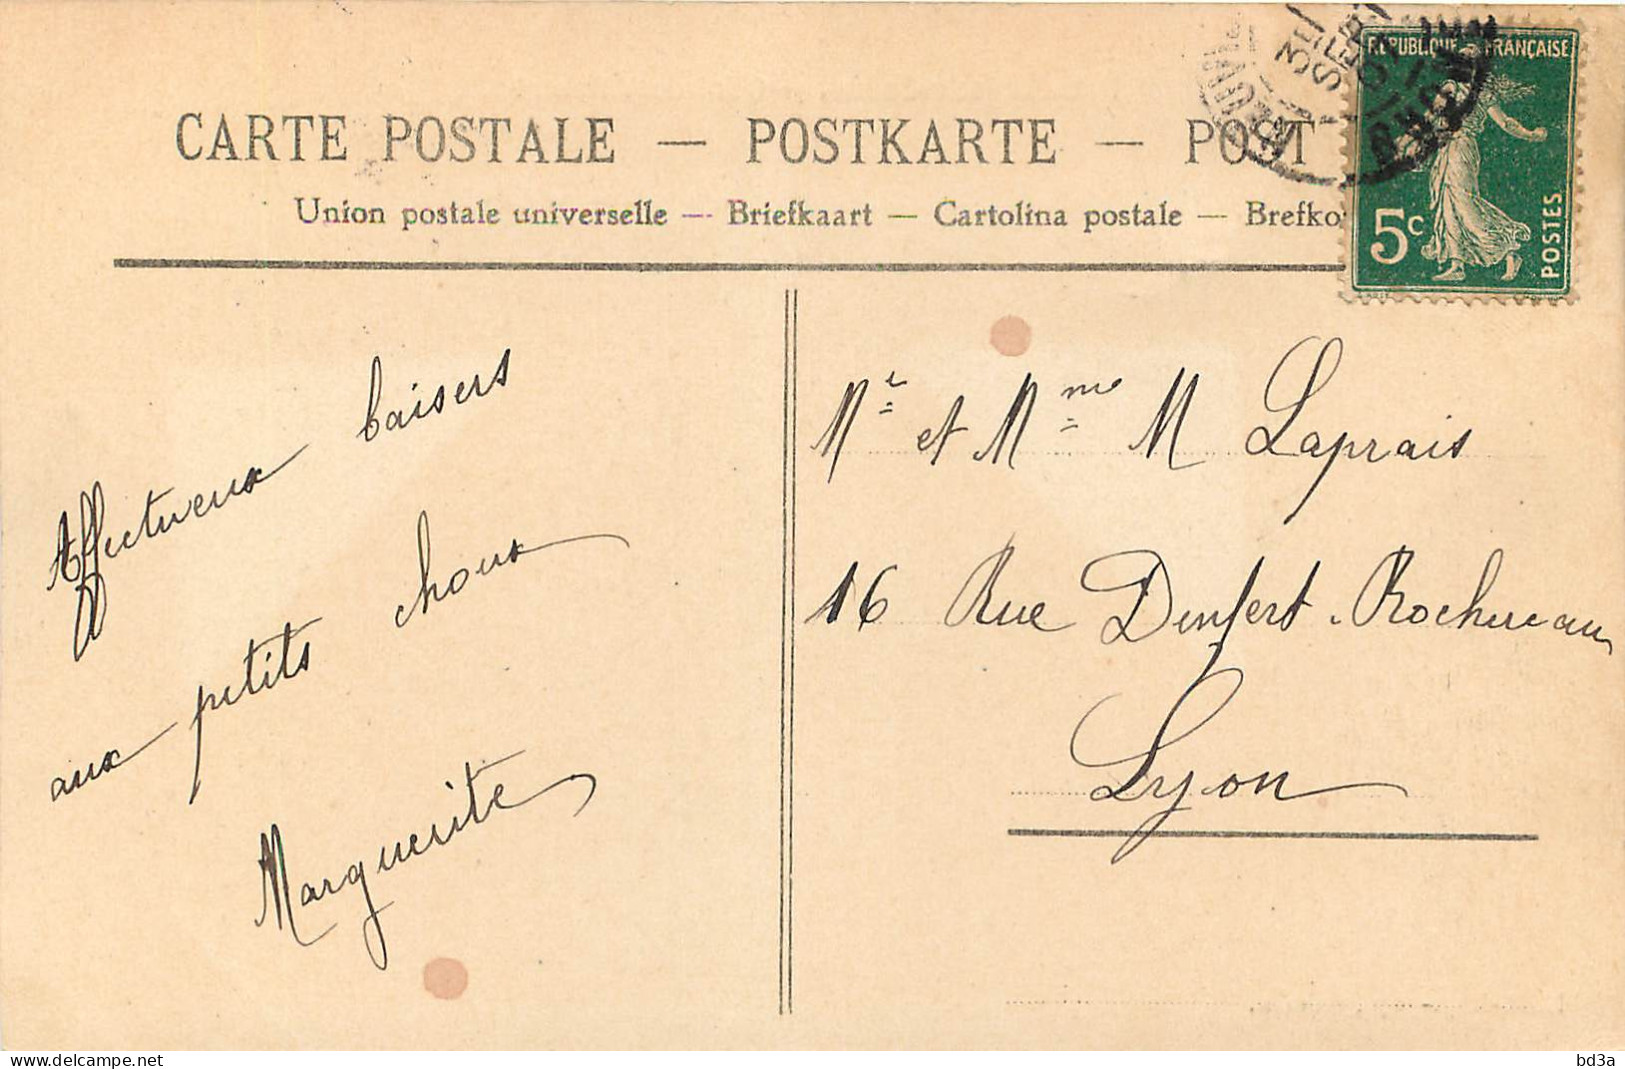 CARTE POSTALE — POSTKARTE — POST
Union postale universelle — Briefkaart — Cartolina postale — Brefko
RÉPUBLIQUE FRANÇAISE
5c
POSTES
SEPT
07
Affectueux baisers
aux petits choux
Marguerite
Mr et Mme M Laprais
16 Rue Denfert-Rochereau
Lyon
delcampe.net
bd3a